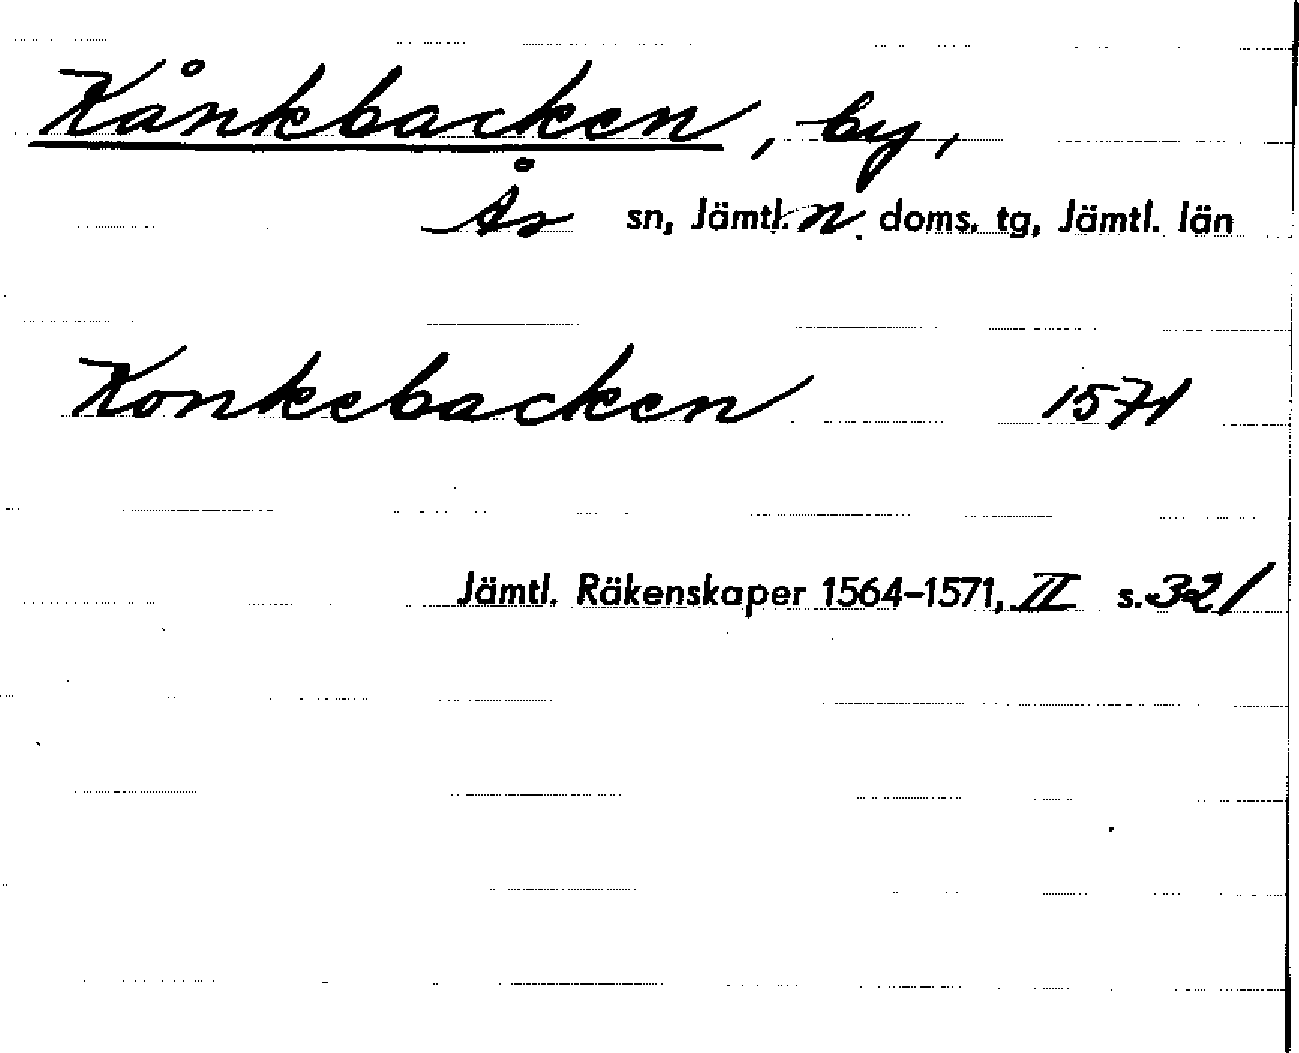 Kånkbacken, by,
Ås sn, Jämtl. n. doms. tg, Jämtl. län
Konkebacken 1571
Jämtl. Räkenskaper 1564-1571, II s. 321